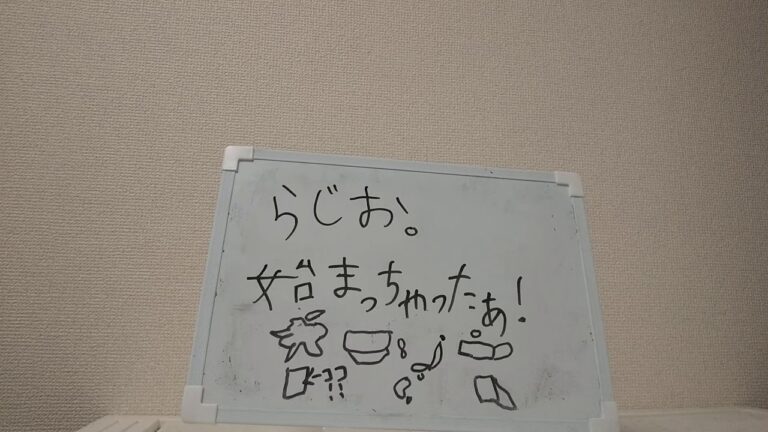 らじお。
始まっちゃったぁ!
??
!!